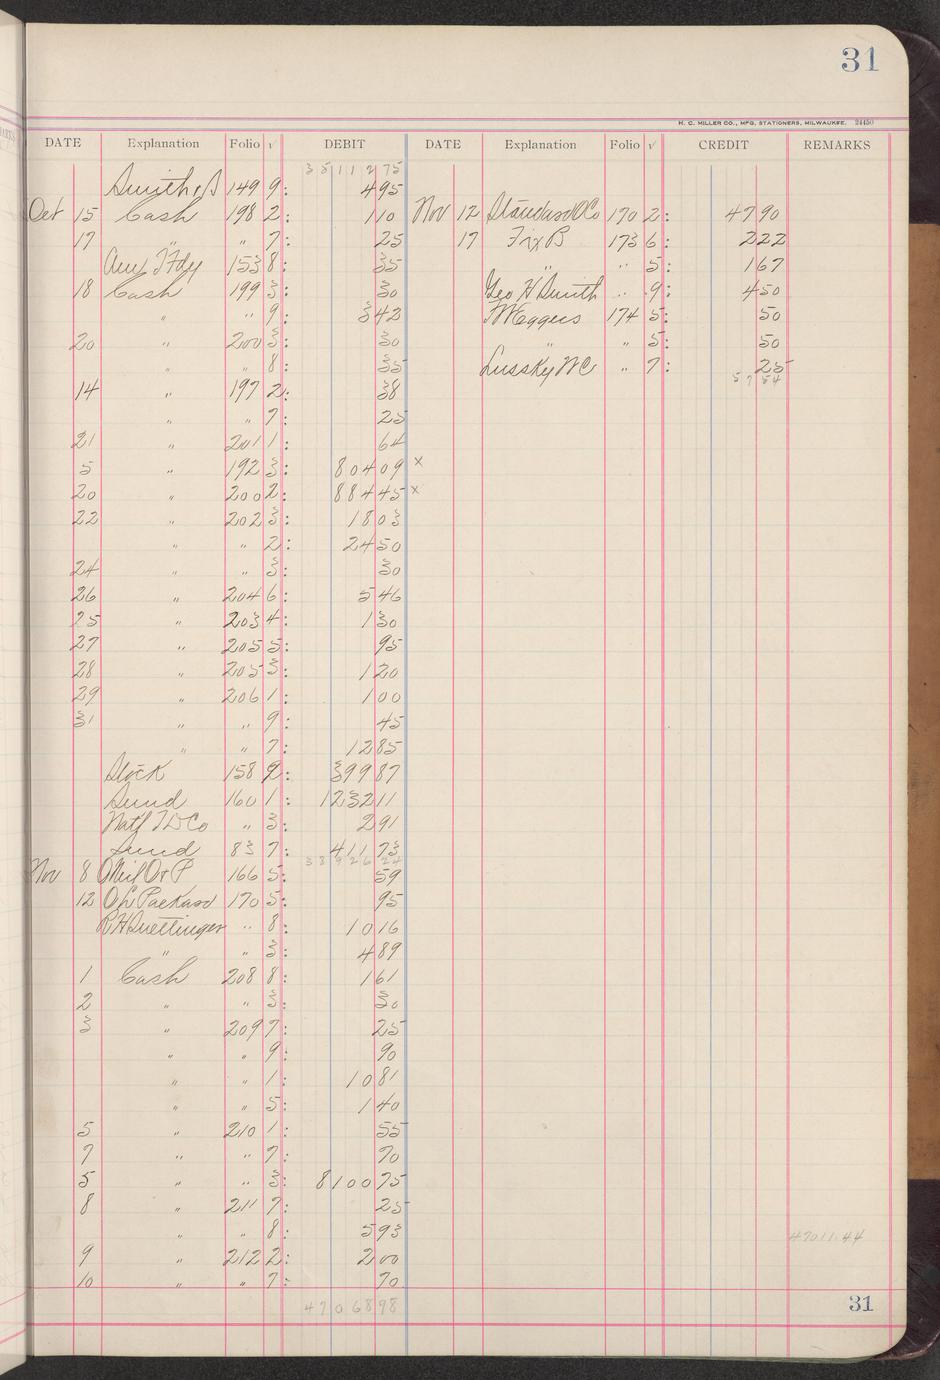 31
H. C. MILLER CO., MFG. STATIONERS, MILWAUKEE. 24450
DATE Explanation Folio √ DEBIT DATE Explanation Folio √ CREDIT REMARKS
3511275
Smith & B 149 9: 495
Oct 15 Cash 198 2: 110 Nov 12 Standard O Co 170 2: 4790
17 " " 7: 25 17 Fix B 173 6: 222
Am T Fdy 153 8: 35 " " 5: 167
18 Cash 199 3: 30 Geo H Smith " 9: 450
" " 9: 342 F W Eggers 174 5: 50
20 " 200 3: 30 " " 5: 50
" " 8: 35 Lussky W C " 7: 25
5754
14 " 197 2: 38
" " 7: 25
21 " 201 1: 64
5 " 192 3: 80409 x
20 " 200 2: 88445 x
22 " 202 3: 1803
" " 2: 2450
24 " " 3: 30
26 " 204 6: 546
25 " 203 4: 130
27 " 205 5: 95
28 " 205 3: 120
29 " 206 1: 100
31 " " 9: 45
" " 7: 1285
Stock 158 9: 39987
Sund 160 1: 123211
Natl T D Co " 3: 291
Sund 83 7: 41173
3892624
Nov 8 O'Neil O & P 166 5: 59
12 O L Packard 170 5: 95
R H Suettinger " 8: 1016
" " 3: 489
1 Cash 208 8: 161
2 " " 3: 30
3 " 209 7: 25
" " 9: 90
" " 1: 1081
" " 5: 140
5 " 210 1: 55
7 " " 7: 70
5 " " 3: 810075
8 " 211 7: 25
" " 8: 593
47011.44
9 " 212 2: 200
10 " " 7: 70
4706898
31